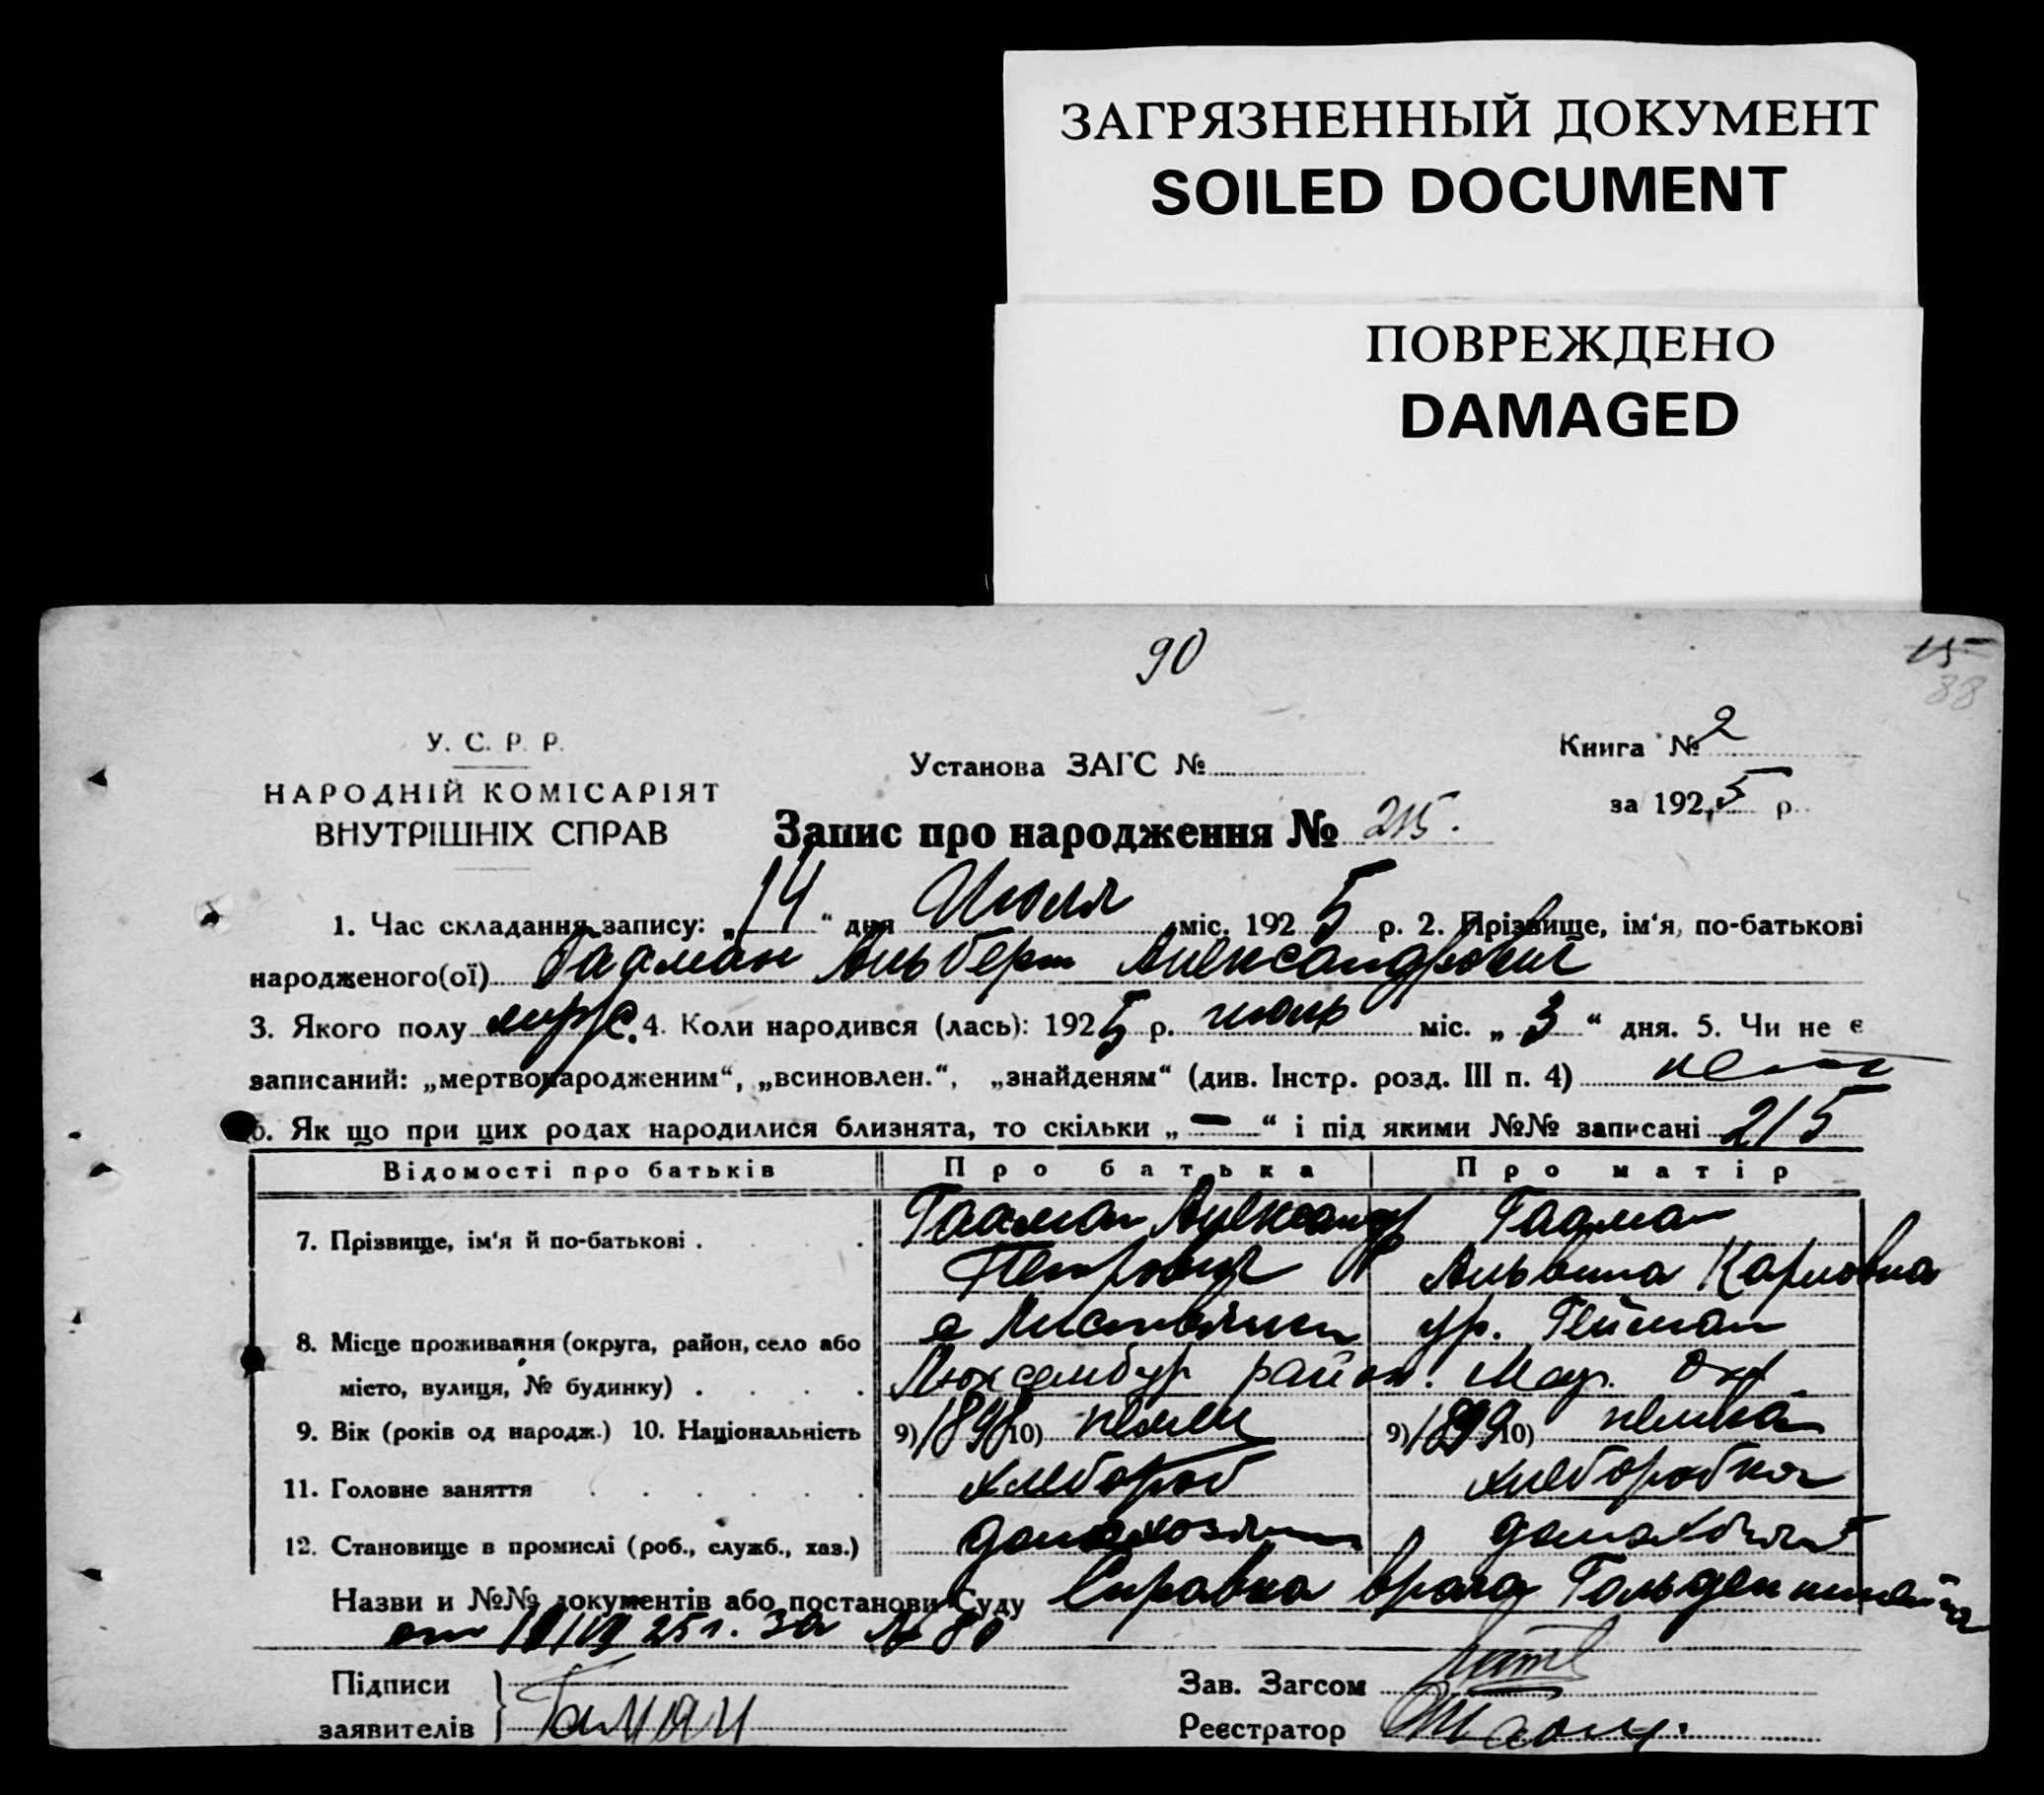 ЗАГРЯЗНЕННЫЙ ДОКУМЕНТ
SOILED DOCUMENT
ПОВРЕЖДЕНО
DAMAGED
90
15
38
У. С. Р. Р.
НАРОДНІЙ КОМІСАРІЯТ
ВНУТРІШНІХ СПРАВ
Установа ЗАГС №
Книга № 2
за 1925 р.
Запис про народження № 215.
1. Час складання запису: „14“ дня Июля міс. 1925 р. 2. Прізвище, ім‘я, по-батькові
народженого(ої) Гааман Альберт Александрович
3. Якого полу муж. 4. Коли народився (лась): 1925 р. июль міс. „3“ дня. 5. Чи не є
записаний: „мертвонародженим“, „всиновлен.“, „знайденям“ (див. Інстр. розд. III п. 4) нет
6. Як що при цих родах народилися близнята, то скільки „—“ і під якими №№ записані 215
Відомості про батьків Про батька Про матір
7. Прізвище, ім‘я й по-батькові . Гааман Александр Гааман
Петрович Альвина Карловна
ур. Гейман
8. Місце проживання (округа, район, село або
місто, вулиця, № будинку) . Люксембур район. Мар. Окр
9. Вік (років од народж.) 10. Національність 9) 1898 10) немец 9) 1899 10) немка
11. Головне заняття хлебороб хлеборобка
12. Становище в промислі (роб., служб., хаз.) домахозяин
Назви и №№ документів або постанови Суду Справка врача Гольденштейна
от 25 г. за № 80
Підписи
заявителів Гаман
Зав. Загсом
Реєстратор